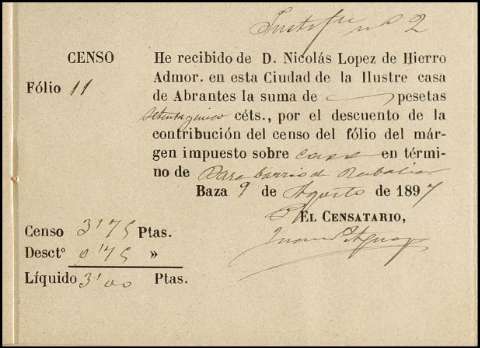 nº 2
CENSO
Fólio 11
He recibido de D. Nicolás Lopez de Hierro
Admor. en esta Ciudad de la Ilustre casa
de Abrantes la suma de pesetas
setenta y cinco céts., por el descuento de la
contribución del censo del fólio del már-
gen impuesto sobre casa en térmi-
no de
Baza 9 de Agosto de 1897
EL CENSATARIO,
Censo 3'75 Ptas.
Desctº 0'75 »
Líquido 3'00 Ptas.